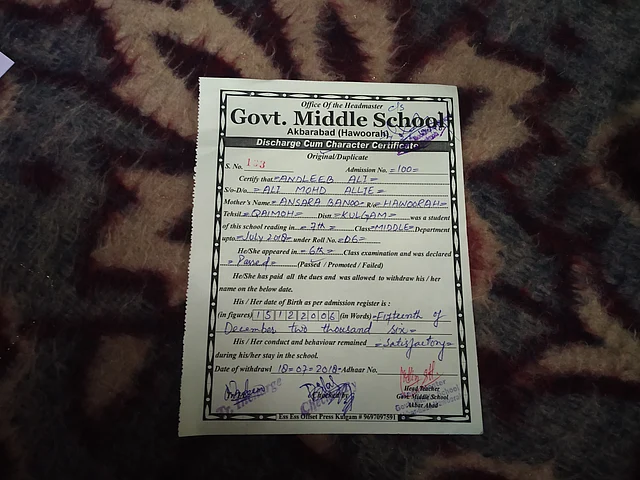 Office Of the Headmaster
Govt. Middle School
Akbarabad (Hawoorah)
Discharge Cum Character Certificate
Original/Duplicate
S. No. 123 Admission No. =100=
Certify that =ANDLEEB ALI=
S/o-D/o... =ALI MOHD ALLIE=
Mother's Name =ANSARA BANOO= R/o =HAWOORAH=
Tehsil =QAIMOH= Distt. =KULGAM= was a student
of this school reading in =7th= Class =MIDDLE= Department
upto =July 2018= under Roll No. =06=
He/She appeared in =6th= Class examination and was declared
=Passed= (Passed / Promoted / Failed)
He/She has paid all the dues and was allowed to withdraw his / her
name on the below date.
His / Her date of Birth as per admission register is :
(in figures) 15122006 (in Words) =Fifteenth of
December two thousand six=
His / Her conduct and behaviour remained =Satisfactory=
during his/her stay in the school.
Date of withdrawl 18-07-2018 Adhaar No.
Checked by
Head Teacher
Govt. Middle School
Akbar Abad
Ess Ess Offset Press Kulgam # 9697097591